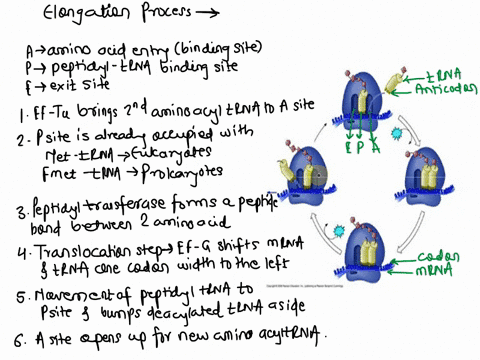 Elongation Process →
A → amino acid entry (binding site)
P → peptidyl-tRNA binding site
E → exit site
1. EF-Tu brings 2nd aminoacyl tRNA to A site
2. P site is already occupied with
Met-tRNA → Eukaryotes
Fmet-tRNA → Prokaryotes
3. Peptidyl trasferase forms a peptide
bond between 2 amino acid
4. Translocation step → EF-G shifts mRNA
& tRNA one codon width to the left
5. Movement of peptidyl tRNA to
P site & bumps deacylated tRNA aside
6. A site opens up for new amino acyl tRNA.
tRNA
Anticodon
E P A
codon
mRNA